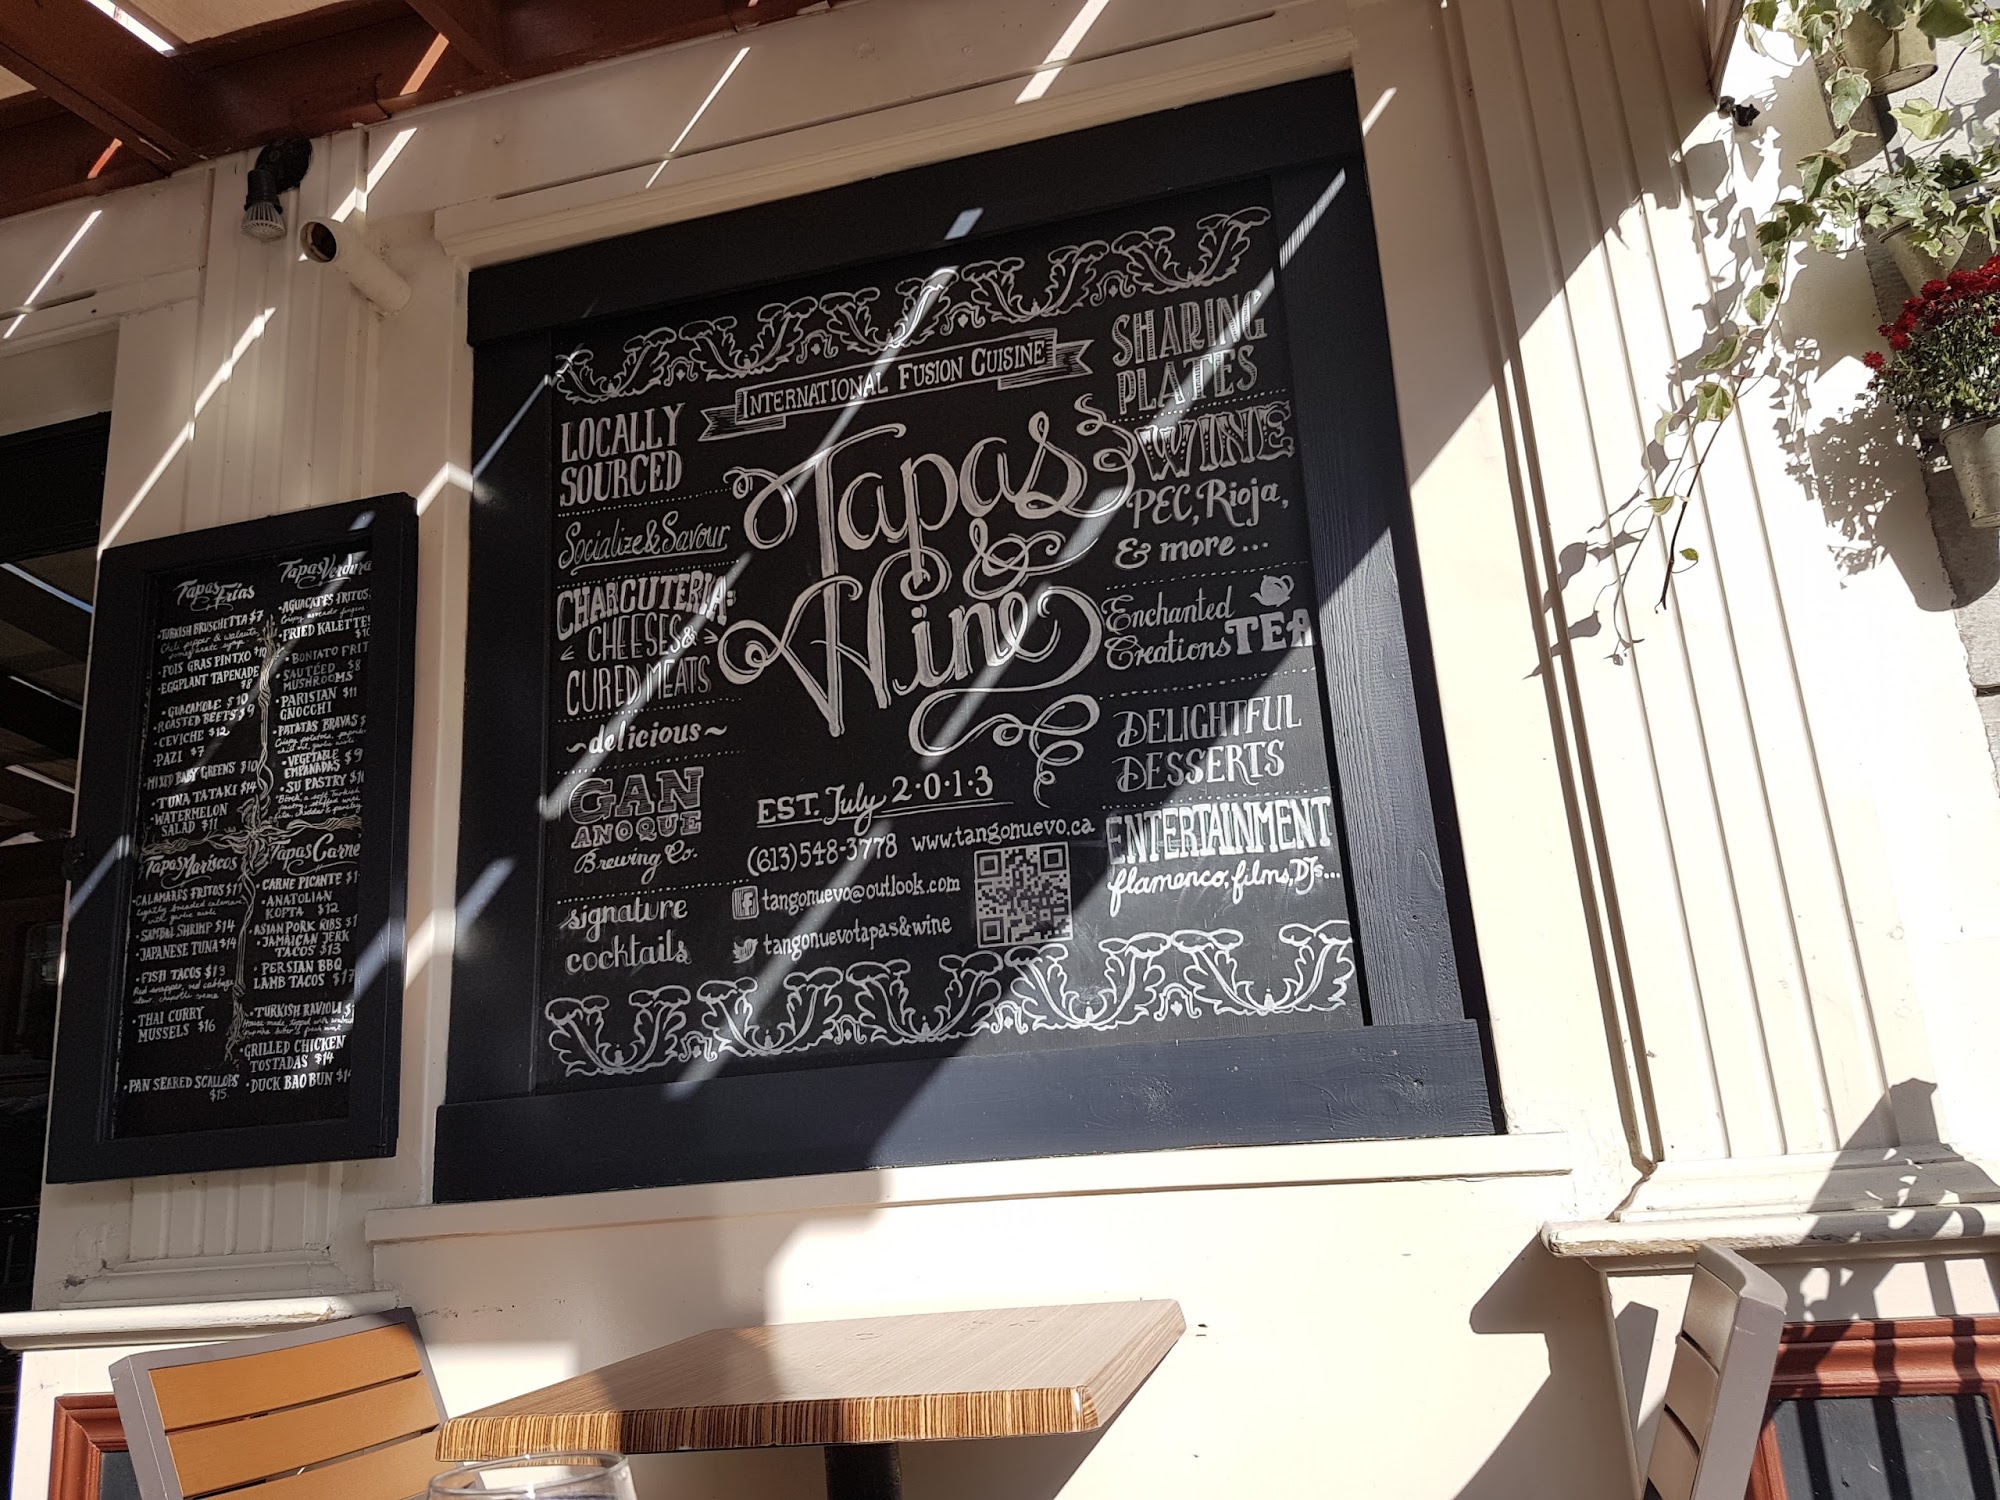 Tapas Frías
•TURKISH BRUSCHETTA $7
Chili pepper & walnuts
pomegranate syrup
•FOIS GRAS PINTXO $10
•EGGPLANT TAPENADE
$8
•GUACAMOLE $10
•ROASTED BEETS $9
•CEVICHE $12
•PAZI $7
•MIXED BABY GREENS $10
•TUNA TATAKI $14
•WATERMELON
SALAD $11
Tapas Verdura
•AGUACATES FRITOS:
Crispy avocado fingers
•FRIED KALETTES
•BONIATO FRIT
•SAUTÉED $8
MUSHROOMS
•PARISTAN $11
GNOCCHI
•PATATAS BRAVAS $
Crispy potatoes, paprika
•VEGETABLE $9
EMPANADAS
•SU PASTRY
Tapas Mariscos
•CALAMARES FRITOS $11
Lightly breaded calamari
with garlic aioli
•SAMBAL SHRIMP $14
•JAPANESE TUNA $14
•FISH TACOS $13
Red snapper, red cabbage
slaw, chipotle creme
•THAI CURRY
MUSSELS $16
•PAN SEARED SCALLOPS
$15
Tapas Carne
•CARNE PICANTE
•ANATOLIAN
KOFTA $12
•ASIAN PORK RIBS
•JAMAICAN JERK
TACOS $13
•PERSIAN BBQ
LAMB TACOS
•TURKISH RAVIOLI
•GRILLED CHICKEN
TOSTADAS $14
•DUCK BAO BUN
LOCALLY
SOURCED
Socialize & Savour
CHARCUTERIA:
CHEESES &
CURED MEATS
~delicious~
GAN
ANOQUE
Brewing Co.
signature
cocktails
INTERNATIONAL FUSION CUISINE
Tapas
&
Wine
EST. July 2·0·1·3
(613)548-3778 www.tangonuevo.ca
tangonuevo@outlook.com
tangonuevotapas&wine
SHARING
PLATES
WINE
PEC, Rioja,
& more...
Enchanted
Creations TEA
DELIGHTFUL
DESSERTS
ENTERTAINMENT
flamenco, films, DJs...